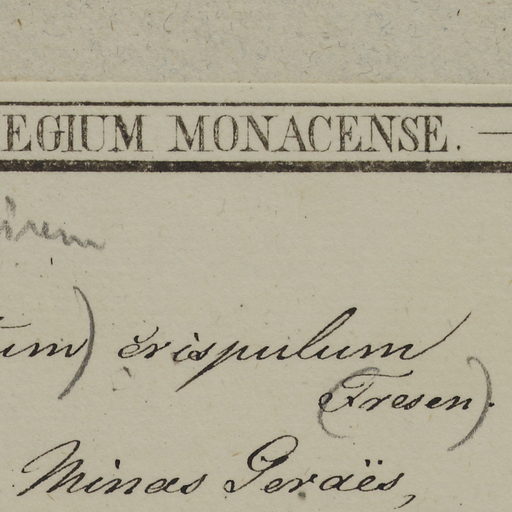 EGIUM MONACENSE. —
tum) crispulum
(Fresen).
Minas Geraës,